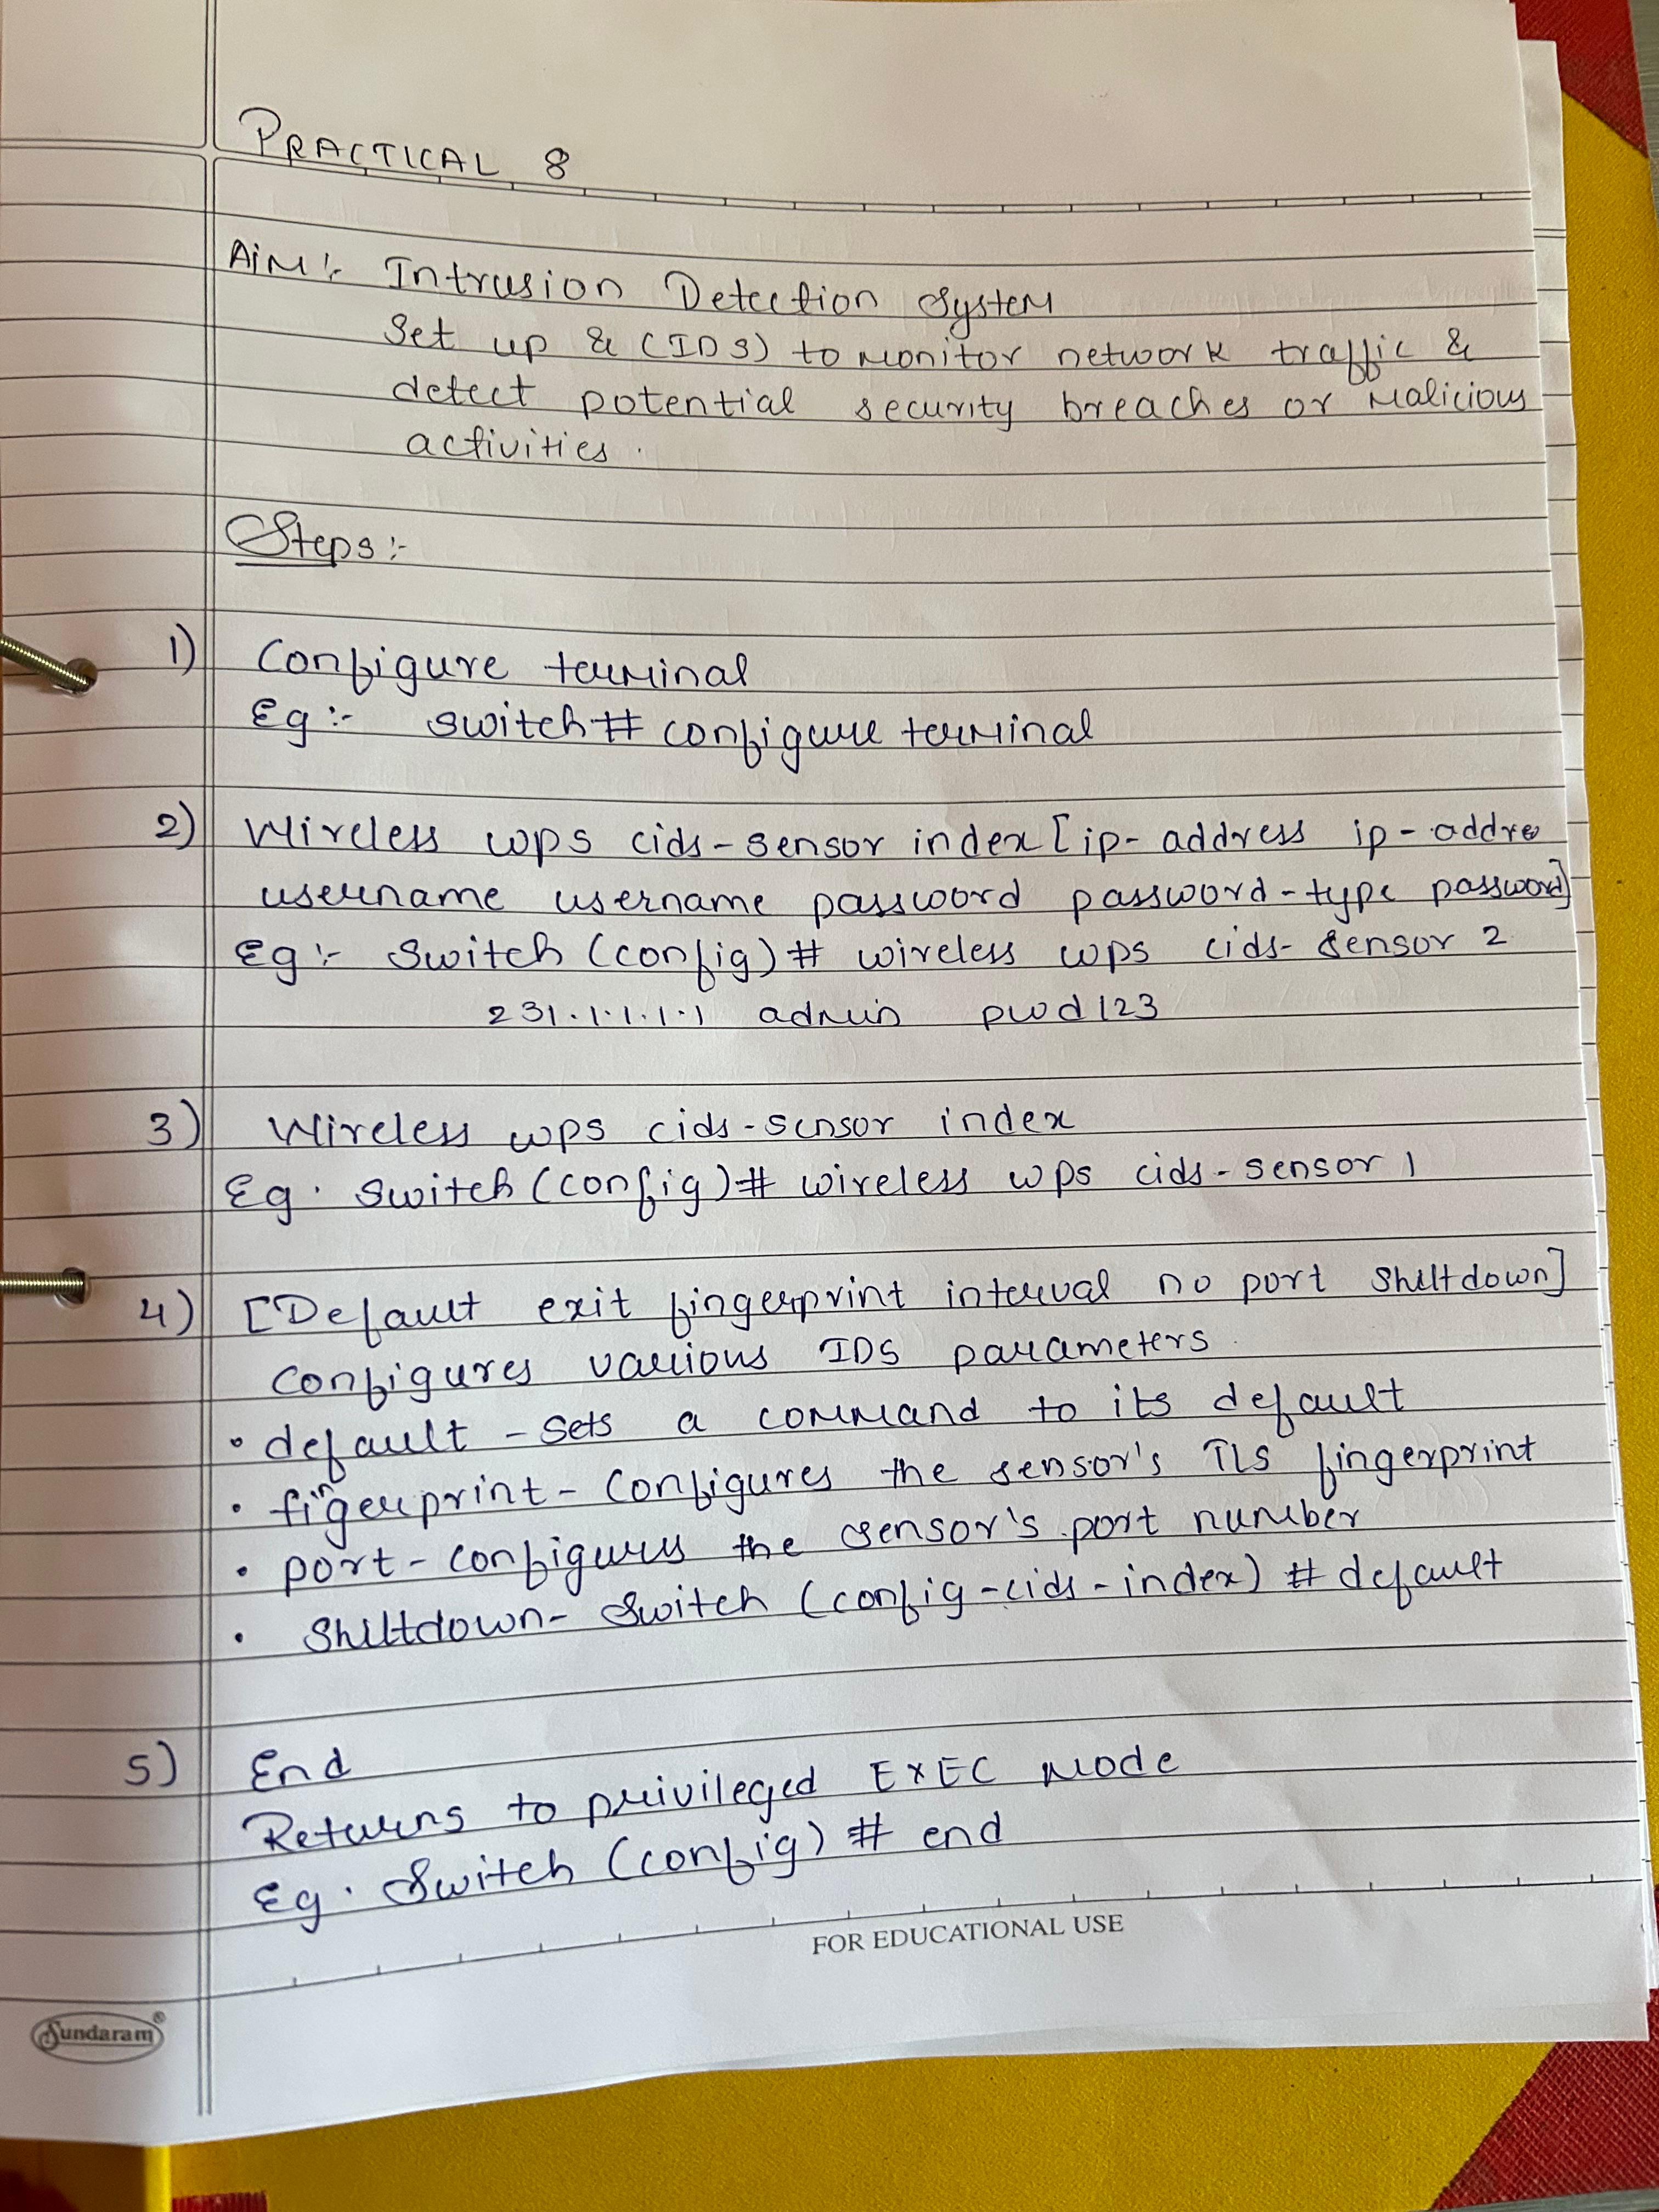 PRACTICAL 8
AIM :- Intrusion Detection System
Set up & (IDS) to monitor network traffic &
detect potential security breaches or malicious
activities.
Steps :-
1) Configure terminal
Eg :- switch # configure terminal
2) Wireless wps cids-sensor index [ip-address ip-addre
username username password password-type password]
Eg :- Switch (config) # wireless wps cids-sensor 2
231.1.1.1.1 admin pwd123
3) Wireless wps cids-sensor index
Eg. Switch (config) # wireless wps cids-sensor 1
4) [Default exit fingerprint interval no port Shutdown]
Configures various IDS parameters.
• default - sets a command to its default
• fingerprint - Configures the sensor's TLS fingerprint
• port - configures the sensor's port number
• Shutdown - Switch (config-cids-index) # default
5) End
Returns to privileged EXEC mode
Eg. Switch (config) # end
FOR EDUCATIONAL USE
Sundaram®